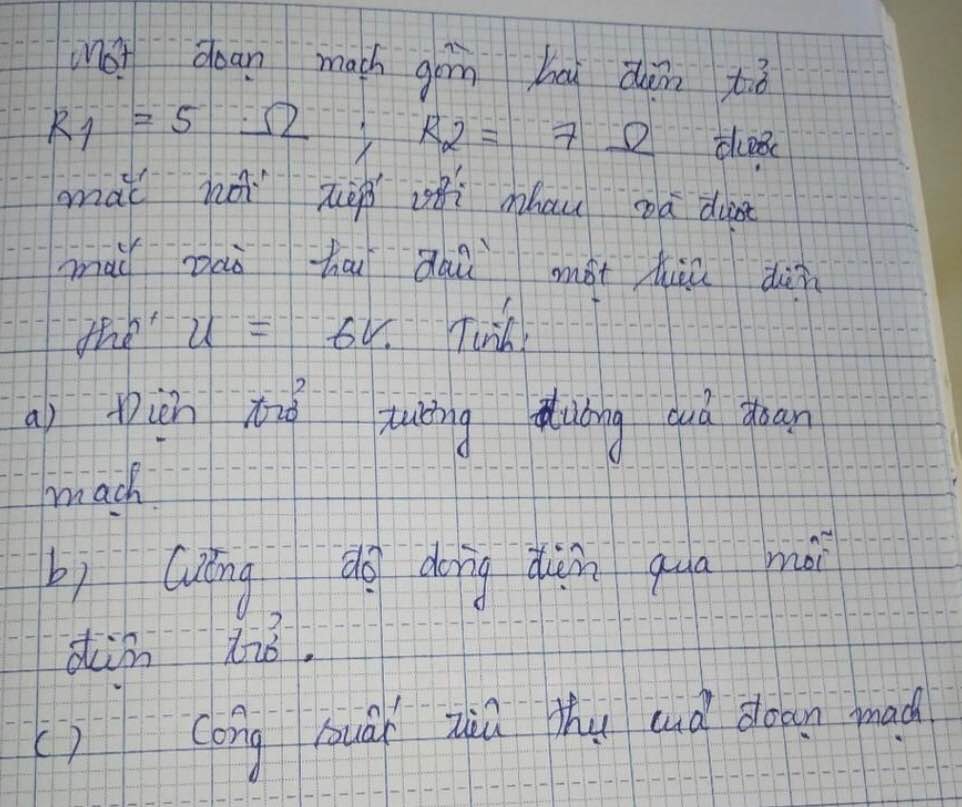 Một đoạn mạch gồm hai điện trở
R1 = 5 Ω ; R2 = 7 Ω được
mắc nối tiếp với nhau và được
mắc vào hai đầu một hiệu điện
thế U = 6V. Tính:
a) Điện trở tương đương của đoạn
mạch.
b) Cường độ dòng điện qua mỗi
điện trở.
c) Công suất tiêu thụ của đoạn mạch.